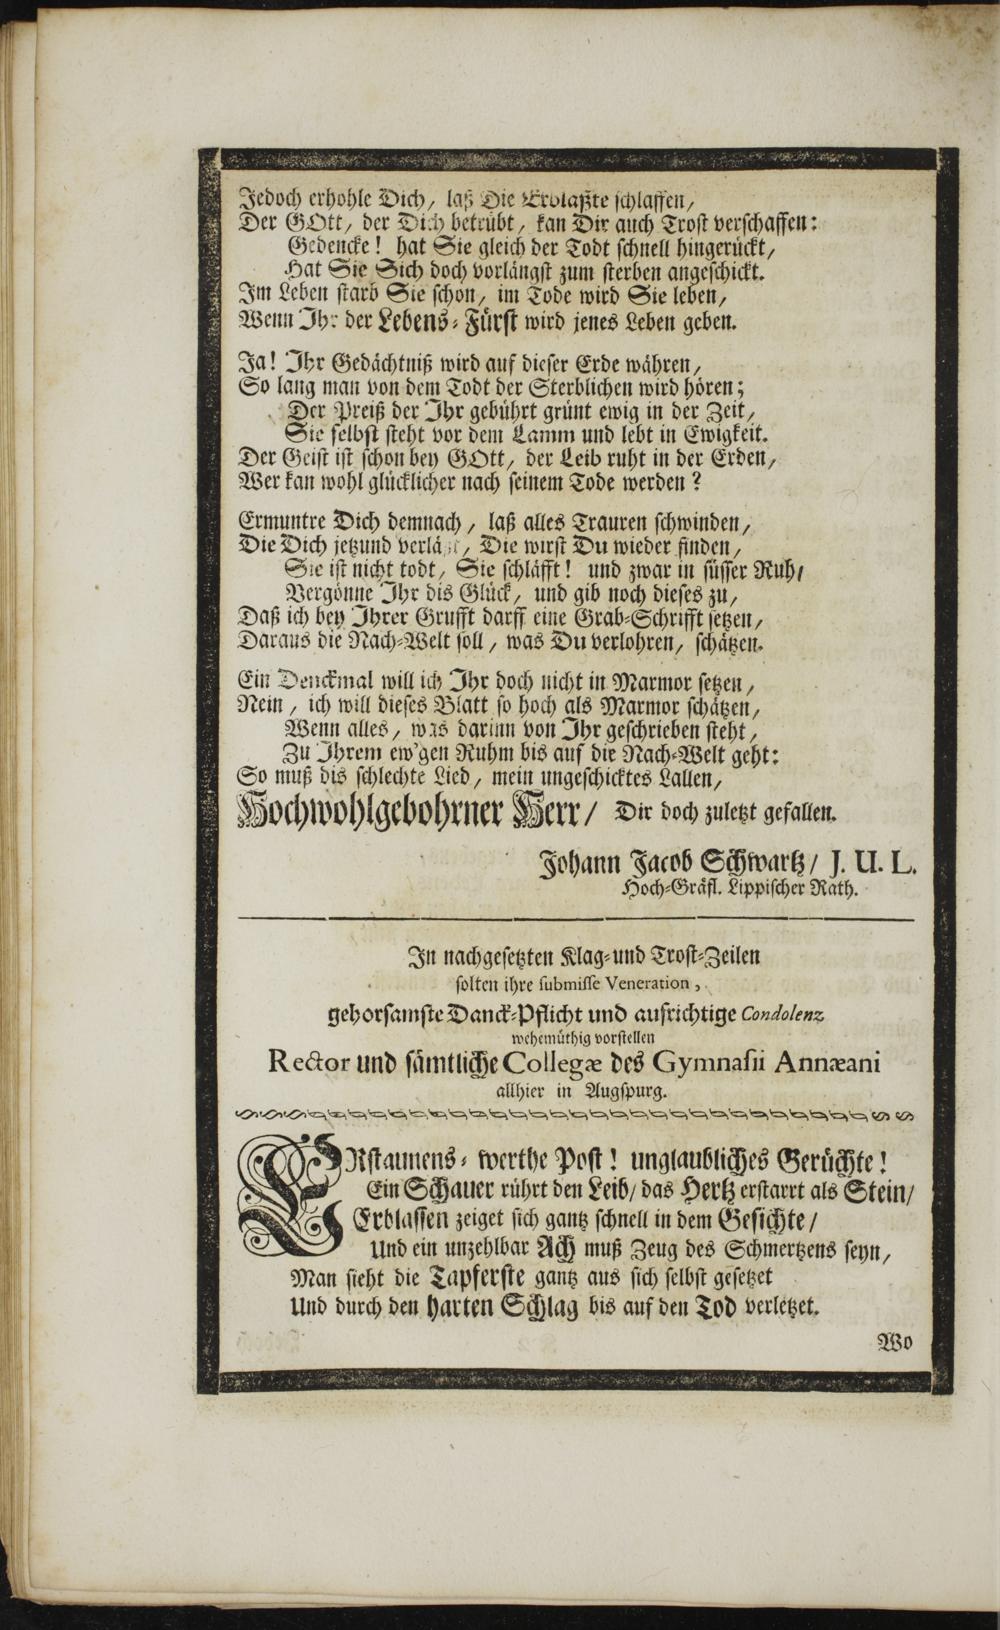 Jedoch erhohle Dich, laß Die Erblaßte schlaffen,
Der GOtt, der Dich betrübt, kan Dir auch Trost verschaffen:
Gedencke! hat Sie gleich der Todt schnell hingerückt,
Hat Sie Sich doch vorlängst zum sterben angeschickt.
Im Leben starb Sie schon, im Tode wird Sie leben,
Wenn Ihr der Lebens-Fürst wird jenes Leben geben.
Ja! Ihr Gedächtniß wird auf dieser Erde währen,
So lang man von dem Todt der Sterblichen wird hören;
Der Preiß der Ihr gebührt grünt ewig in der Zeit,
Sie selbst steht vor dem Lamm und lebt in Ewigkeit.
Der Geist ist schon bey GOtt, der Leib ruht in der Erden,
Wer kan wohl glücklicher nach seinem Tode werden?
Ermuntre Dich demnach, laß alles Trauren schwinden,
Die Dich jetzund verläßt, Die wirst Du wieder finden,
Sie ist nicht todt, Sie schläfft! und zwar in süsser Ruh/
Vergönne Ihr dis Glück, und gib noch dieses zu,
Daß ich bey Ihrer Grufft darff eine Grab-Schrifft setzen,
Daraus die Nach-Welt soll, was Du verlohren, schätzen.
Ein Denckmal will ich Ihr doch nicht in Marmor setzen,
Nein, ich will dieses Blatt so hoch als Marmor schätzen,
Wenn alles, was darinn von Ihr geschrieben steht,
Zu Ihrem ew'gen Ruhm bis auf die Nach-Welt geht:
So muß dis schlechte Lied, mein ungeschicktes Lallen,
Hochwohlgebohrner Herr/ Dir doch zuletzt gefallen.
Johann Jacob Schwartz/ J. U. L.
Hoch-Gräfl. Lippischer Rath.
In nachgesetzten Klag-und Trost-Zeilen
solten ihre submisse Veneration,
gehorsamste Danck-Pflicht und aufrichtige Condolenz
wehemüthig vorstellen
Rector und sämtliche Collegæ des Gymnasii Annæani
allhier in Augspurg.
ERstaunens-werthe Post! unglaubliches Gerüchte!
Ein Schauer rührt den Leib/ das Hertz erstarrt als Stein/
Erblassen zeiget sich gantz schnell in dem Gesichte/
Und ein unzehlbar Ach muß Zeug des Schmertzens seyn,
Man sieht die Tapferste gantz aus sich selbst gesetzet
Und durch den harten Schlag bis auf den Tod verletzet.
Wo